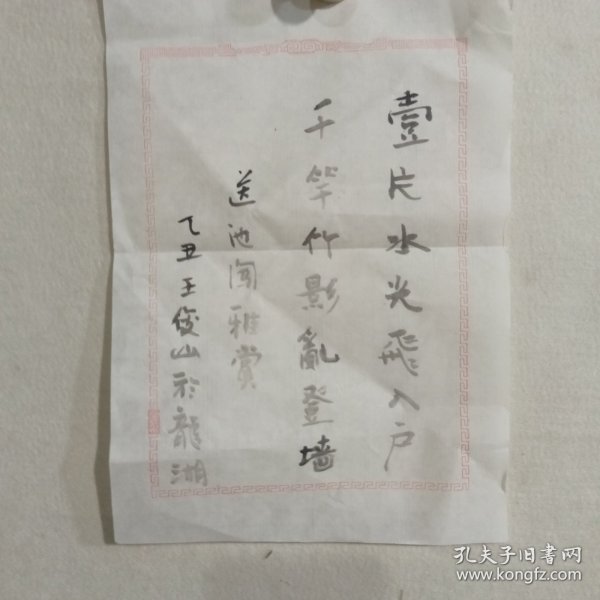 壹片水光飛入户
千竿竹影亂登墙
送池闻雅赏
乙丑王俊山於龍湖
孔夫子旧书网
www.kongfz.com